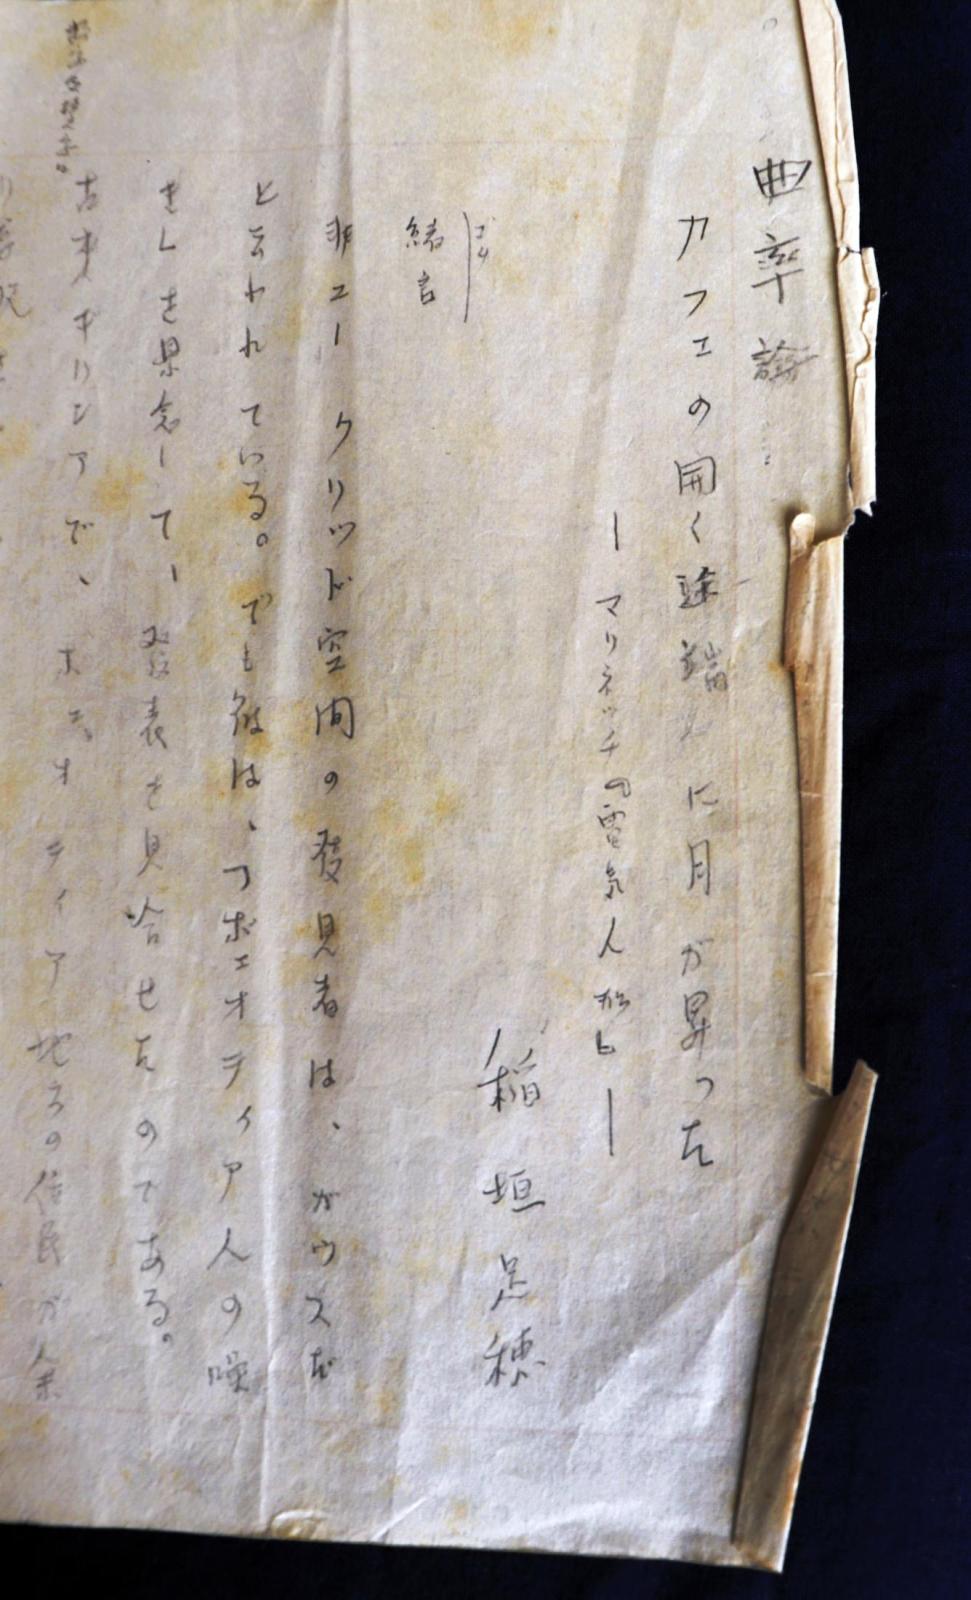 曲率論
カフェの開く途端に月が昇った
―マリネッチの電気人形ヒ―
稲垣足穂
ゴケ
緒言
非ユークリッド空間の発見者は、ガウスだ
と云われている。でも彼は、「ボエオティア人の噪
をしを懸念して、発表を見合せたのである。
古来ギリシアで、ボエオティア地方の住民が